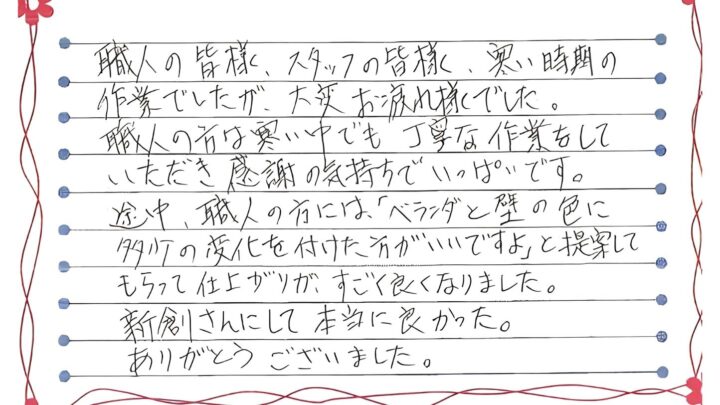 職人の皆様、スタッフの皆様、寒い時期の
作業でしたが、大変お疲れ様でした。
職人の方は寒い中でも丁寧な作業をして
いただき感謝の気持ちでいっぱいです。
途中、職人の方には、「ベランダと壁の色に
多少の変化を付けた方がいいですよ」と提案して
もらって仕上がりが、すごく良くなりました。
新創さんにして本当に良かった。
ありがとうございました。